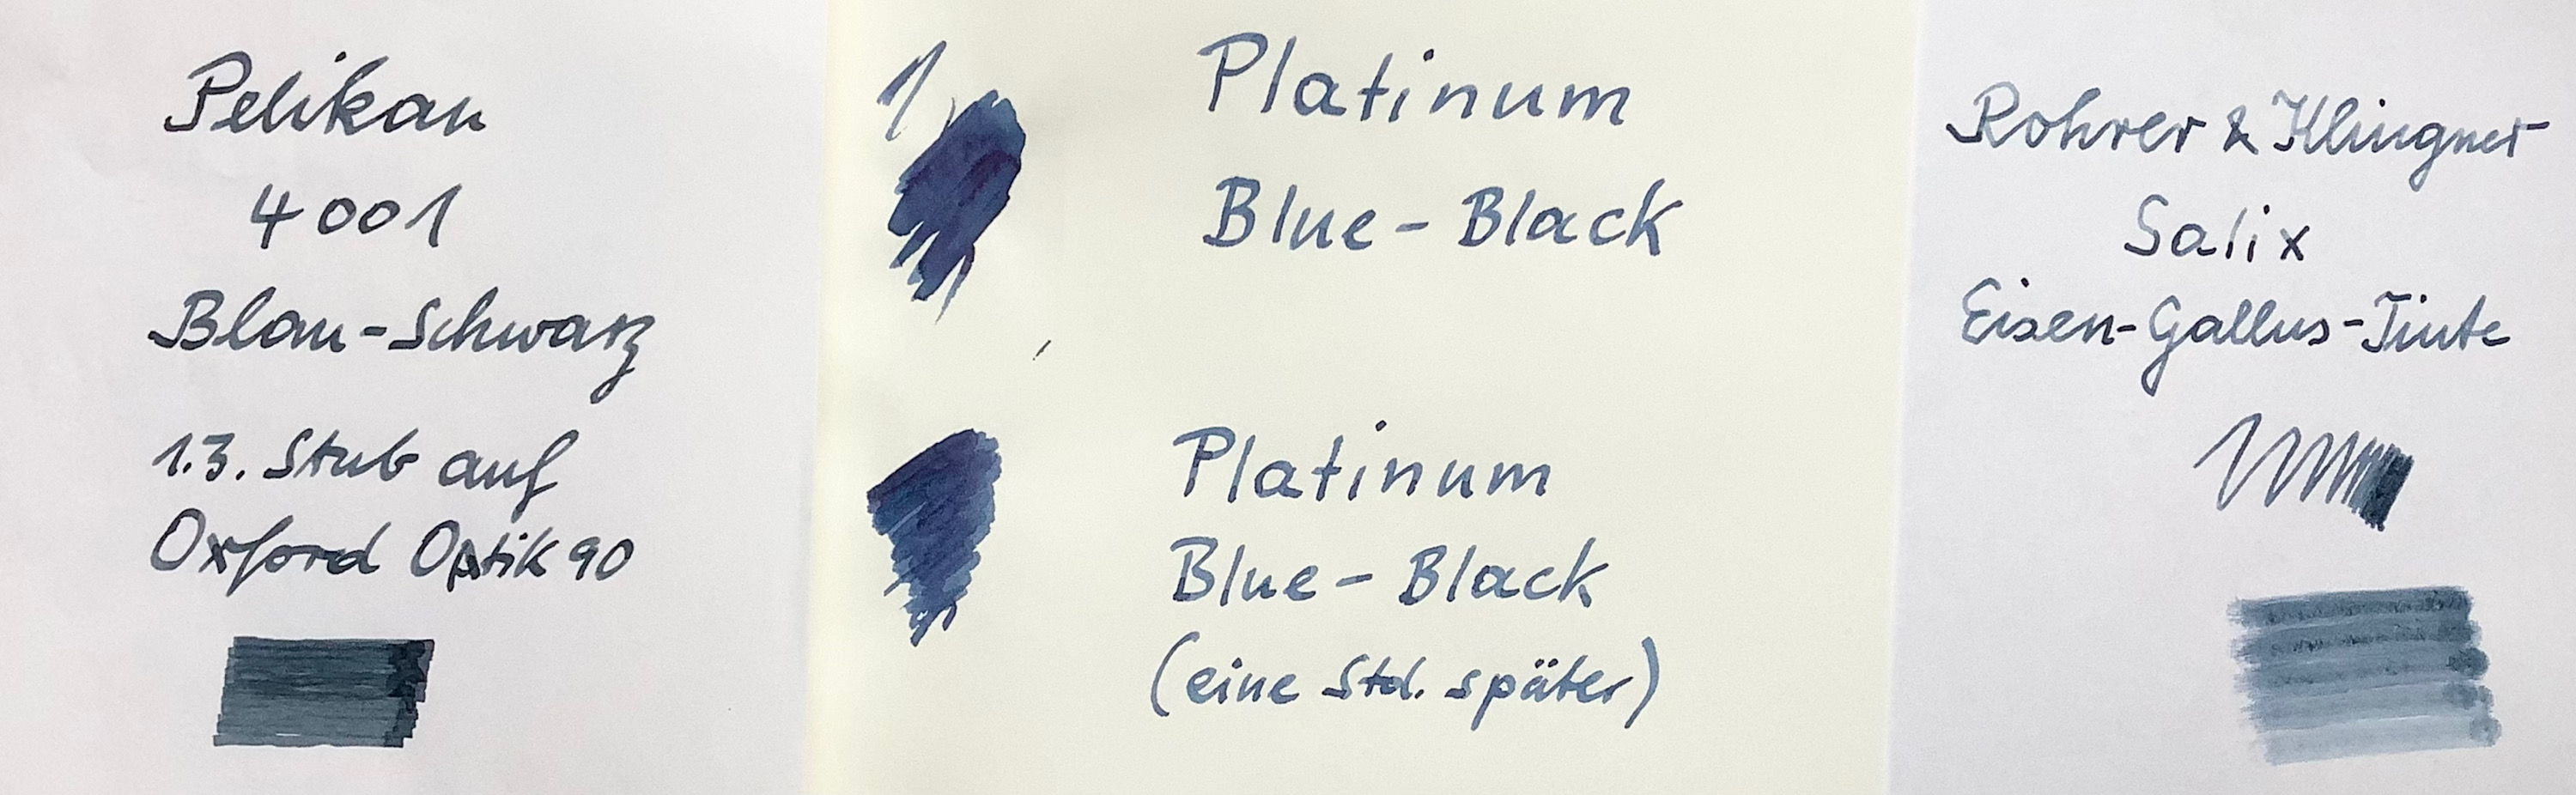 Pelikan
4001
Blau-Schwarz
1.3. Stub auf
Oxford Optik 90
1
Platinum
Blue-Black
Platinum
Blue-Black
(eine Std. später)
Rohrer & Klingner
Salix
Eisen-Gallus-Tinte